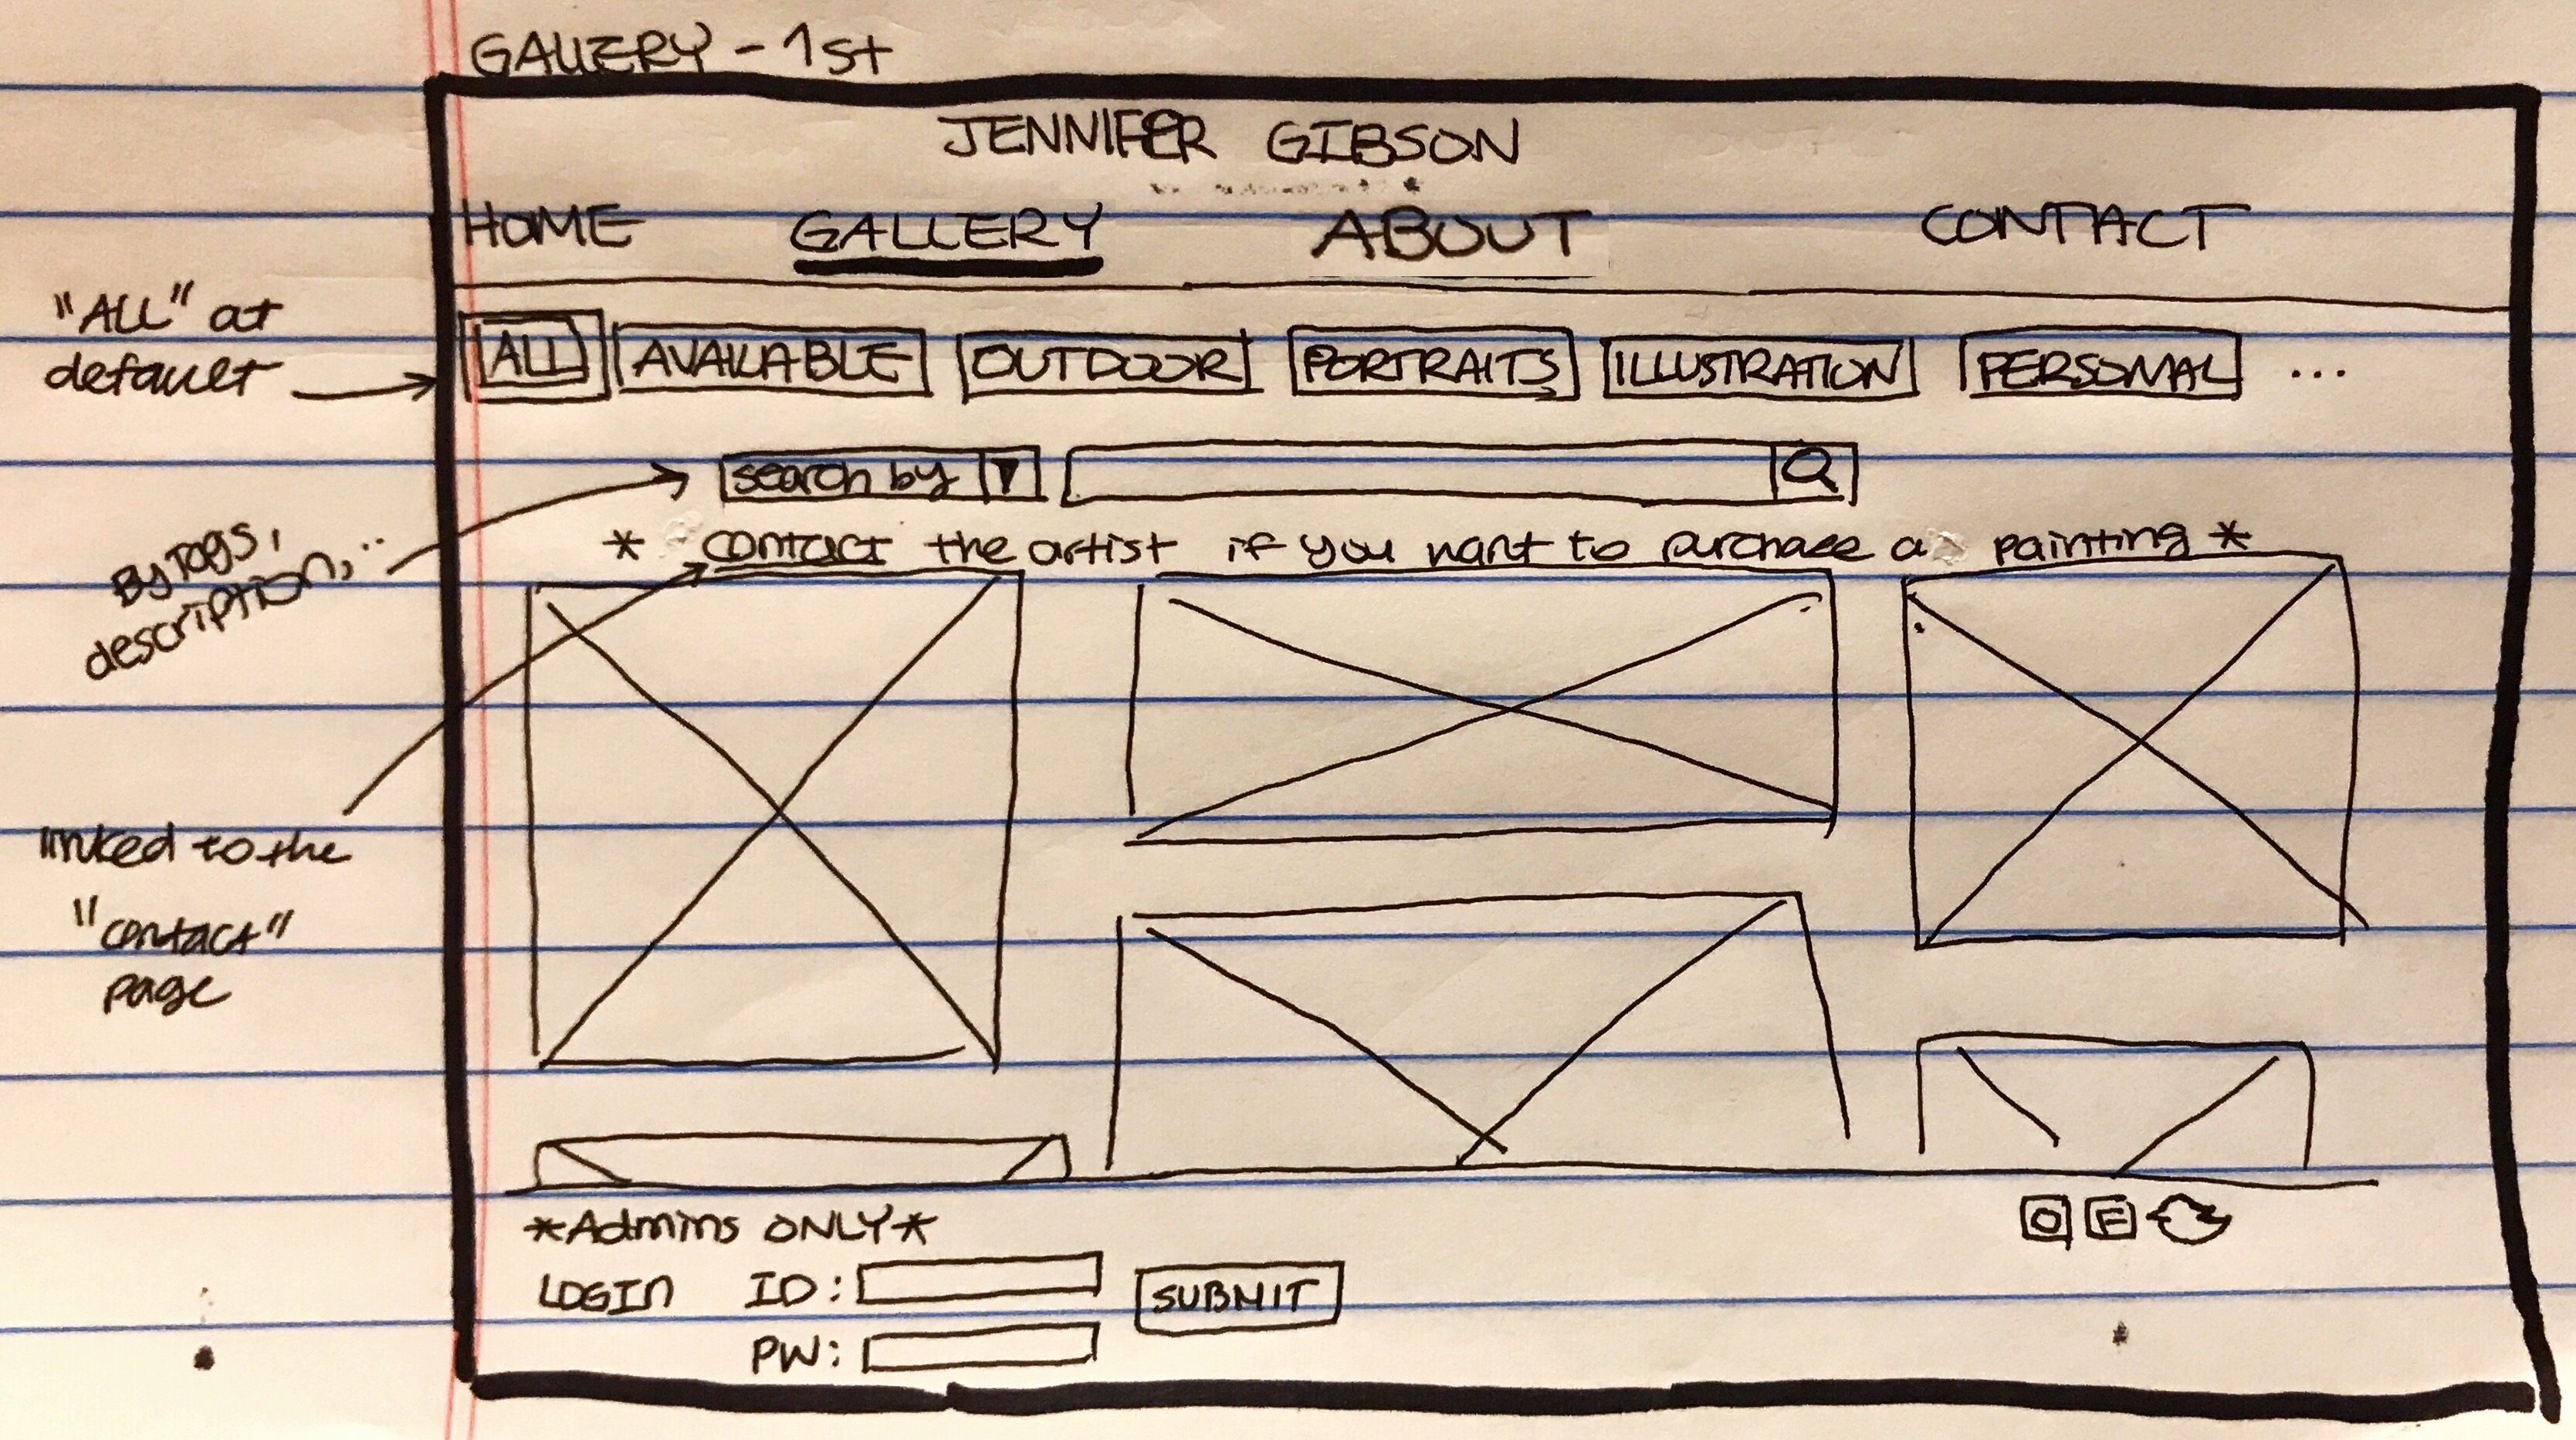 GALLERY - 1st
JENNIFER GIBSON
HOME GALLERY ABOUT CONTACT
"ALL" at
default
ALL AVAILABLE OUTDOOR PORTRAITS ILLUSTRATION PERSONAL ...
search by
By Tags,
description, ..
* contact the artist if you want to purchase a painting *
linked to the
"contact"
page
*Admins ONLY*
F
LOGIN ID:
SUBMIT
PW: